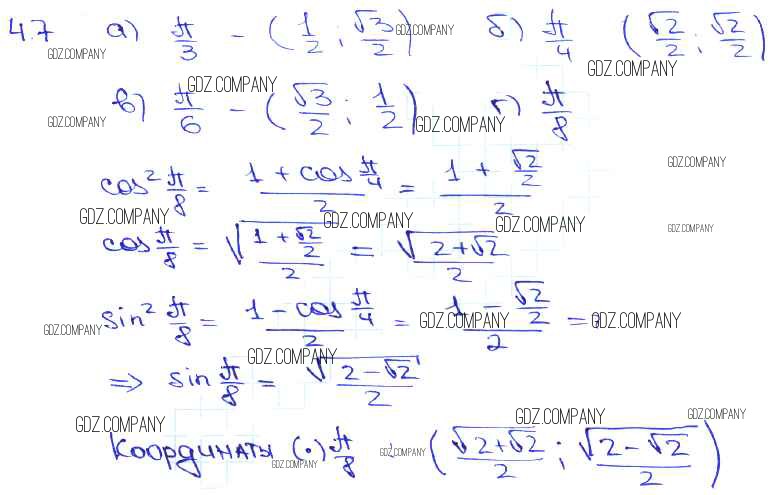 4.7 а) π/3 - (1/2; √3/2) б) π/4 (√2/2; √2/2)
GDZ.COMPANY GDZ.COMPANY GDZ.COMPANY
в) π/6 - (√3/2; 1/2) г) π/8
GDZ.COMPANY GDZ.COMPANY GDZ.COMPANY
cos² π/8 = (1 + cos π/4)/2 = (1 + √2/2)/2
GDZ.COMPANY
GDZ.COMPANY GDZ.COMPANY GDZ.COMPANY GDZ.COMPANY
cos π/8 = √((1 + √2/2)/2) = √(2+√2)/2
sin² π/8 = (1 - cos π/4)/2 = (1 - √2/2)/2 =>
GDZ.COMPANY GDZ.COMPANY GDZ.COMPANY
GDZ.COMPANY
=> sin π/8 = √(2-√2)/2
GDZ.COMPANY GDZ.COMPANY GDZ.COMPANY
Координаты (·) π/8 : (√(2+√2)/2; √(2-√2)/2)
GDZ.COMPANY GDZ.COMPANY